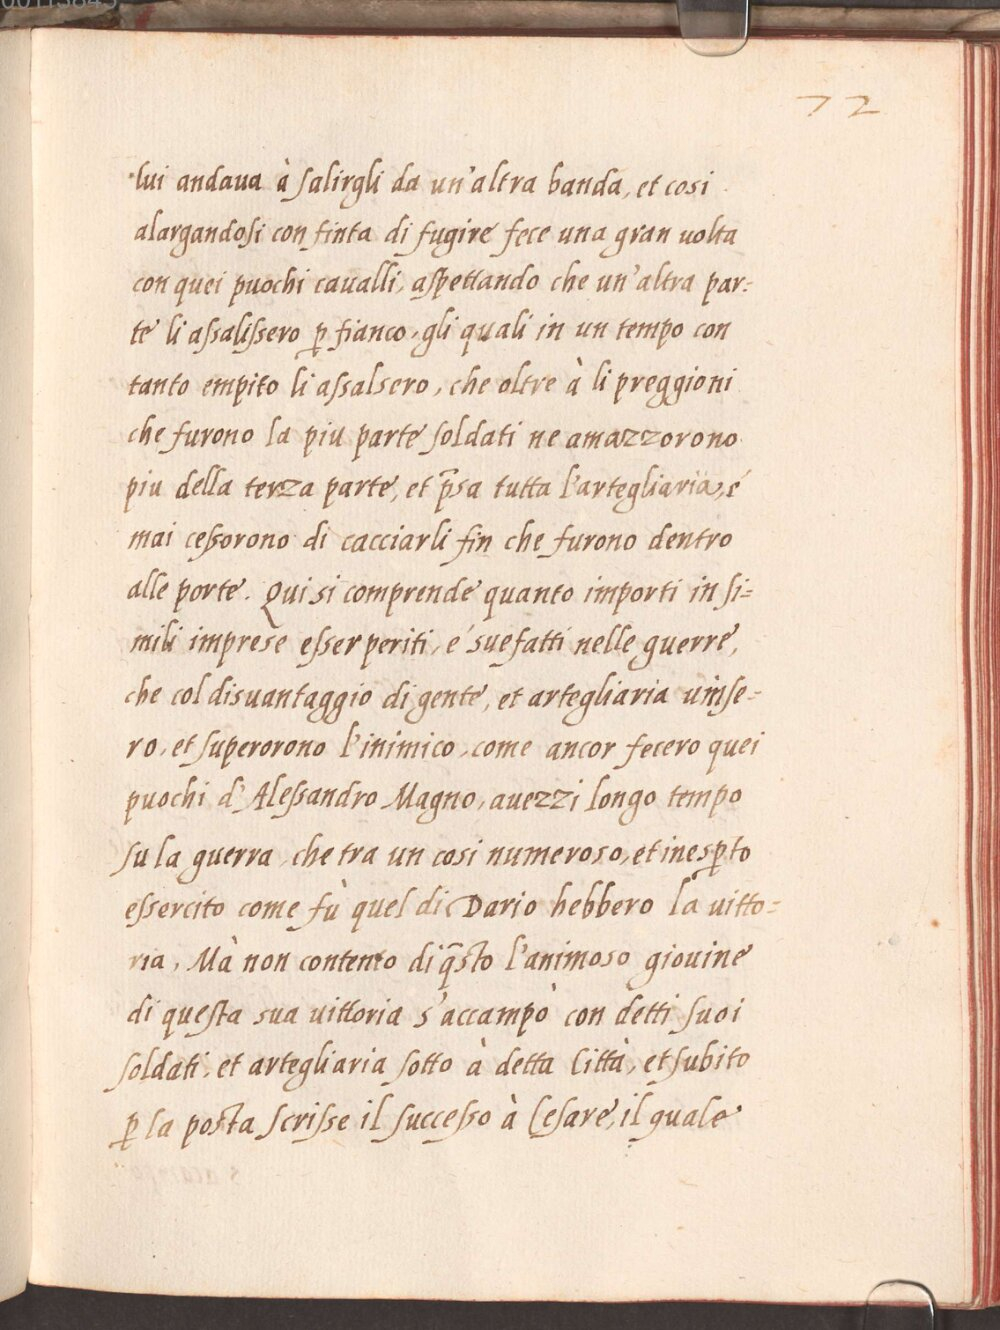 72
lui andaua à salirgli da un'altra banda, et cosi
alargandosi con finta di fugire fece una gran uolta
con quei puochi caualli, aspettando che un'altra par=
te li assalissero p fianco, gli quali in un tempo con
tanto empito li assalsero, che oltre à li preggioni
che furono la piu parte soldati ne amazzorono
piu della terza parte, et p̃sa tutta l'artegliaria, é
mai cessorono di cacciarli fin che furono dentro
alle porte. Qui si comprende quanto importi in si=
mili imprese esser periti, é suefatti nelle guerre,
che col disuantaggio di gente, et artegliaria uinse=
ro, et superorono l'inimico, come ancor fecero quei
puochi d'Alessandro Magno, auezzi longo tempo
su la guerra, che tra un cosi numeroso, et inesp̱to
essercito come fù quel di Dario hebbero la uitto=
ria, Mà non contento di q̃sto l'animoso giouine
di questa sua uittoria s'accampò con detti suoi
soldati, et artegliaria sotto à detta Città, et subito
p la posta scrisse il successo à Cesare, il quale